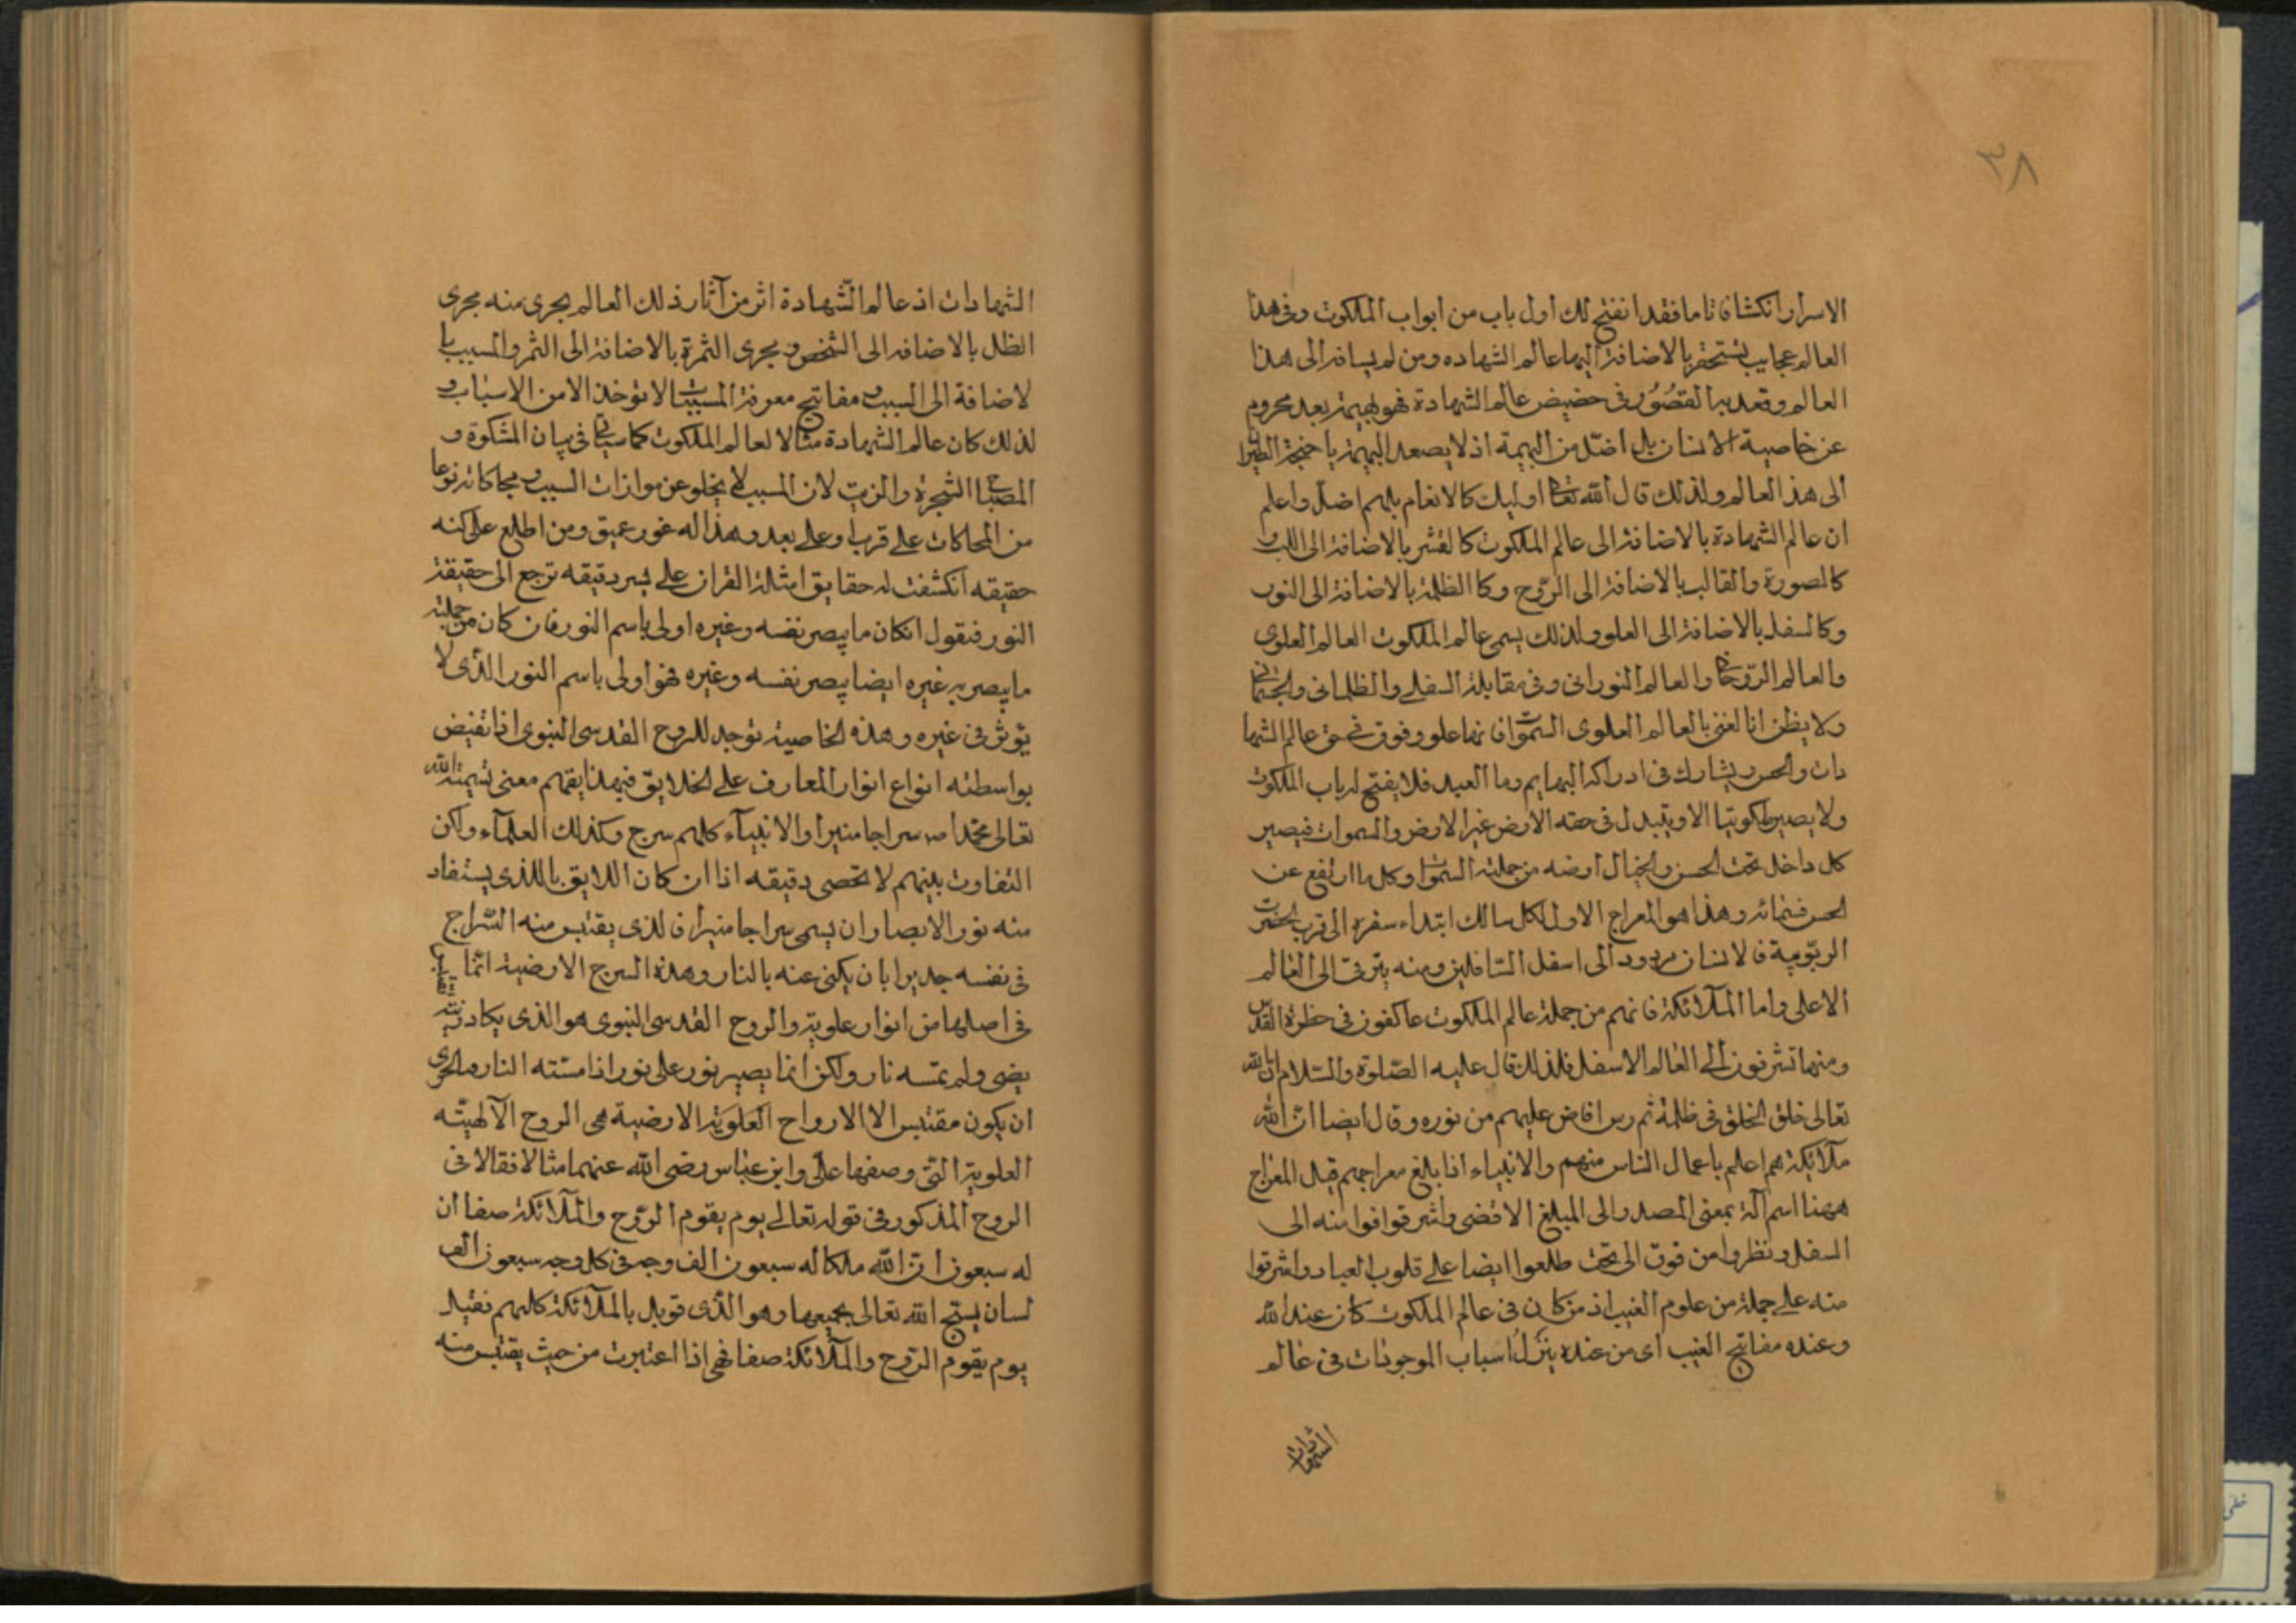 ٣٨
الاسرار انكشافا تاما فقد انفتح لك اول باب من ابواب الملكوت وفى هذا
العالم عجايب يستحقر بالاضافة اليها عالم الشهاده ومن لم يسافر الى هذا
العالم وقعد به القصُوُر فى حضيض عالم الشهادة فهو بهيمة بعد محروم
عن خاصية الانسان بل اضل من البهيمة اذ لا يصعد البهيمة باجنحة الطيران
الى هذ العالم ولذلك قال الله تعا اوليك كالانعام بل هم اضل واعلم
ان عالم الشهادة بالاضافة الى عالم الملكوت كالقشر بالاضافة الى اللب و
كالصورة والقالب بالاضافة الى الرّوح وكا الظلمة بالاضافة الى النور
وكالسفل بالاضافة الى العلو ولذلك يسمى عالم الملكوت العالم العلوى
والعالم الرّوحانى والعالم النورانى وفى مقابلة السفلى والظلمانى والجثمانى
ولا يظن انا لغنى بالعالم العلوى السّموات فانها علو وفوق فى حق عالم الشها
دات والحس ويشارك فى ادراكه البهايم وما العبد فلا يفتح له باب الملكوت
ولا يصير ملكوتيا الا ويتبدل فى حقه الارض غير الارض والسموات فيصير
كل داخل تحت الحس والخيال ارضه من جملته السموات وكل ما ارتفع عن
الحس فسمائه وهذا هو المعراج الاول لكل سالك ابتداء سفره الى قرب الحضرت
الربوبية فالانسان مردود الى اسفل السّافلين ومنه يترقى الى العالم
الاعلى واما الملآئكة فانهم من جملة عالم الملكوت عاكفون فى حظرة القدس
ومنها تشرفون الى العالم الاسفل فلذلك قال عليه الصّلوة والسّلام ان الله
تعالى خلق الخلق فى ظلمة ثم رس افاض عليهم من نوره وقال ايضا انّ لله
ملآئكة هم اعلم باعمال الناس منهم والانبياء اذا بلغ معراجهم قيل المعراج
ههنا اسم آلة بمعنى المصدر الى المبلغ الاقصى واشرقوا فوا منه الى
السفل ونظروا من فوق الى تحت طلعوا ايضا على قلوب العباد واشرقوا
منه على جملة من علوم الغيب اذ من كان فى عالم الملكوت كان عند الله
وعنده مفاتيح الغيب اى من عنده ينزلُ اسباب الموجودات فى عالم
الشهادات
الشهادات اذ عالم الشّهادة اثر من آثار ذلك العالم يجرى منه مجرى
الظل بالاضافه الى الشخص ومجرى الثمرة بالاضافة الى الثمر والمسبب با
لاضافة الى السبب ومفاتيح معرفة المسببات لا توخذ الا من الاسباب و
لذلك كان عالم الشهادة مثالا لعالم الملكوت كما سياتى فى بيان المشكوة و
المصباح الشجرة والزيت لان المسبب لا يخلو عن موازات السبب ومحاكاته نوعا
من المحاكات على قرب او على بعد وهذا له غور عميق ومن اطلع على كنه
حقيقه انكشفت له حقايق امثلة القران على يسر دقيقه ترجع الى حقيقة
النور فنقول ان كان ما يبصر نفسه وغيره اولى باسم النور فان كان من جملته
ما يبصر به غيره ايضا يبصر نفسه وغيره فهو اولى باسم النور الذّى لا
يؤثر فى غيره وهذه الخاصية توجد للروح القدسى النبوى اذا تفيض
بواسطته انواع انوار المعارف على الخلايق فبهذا يفهم معنى تسمية الله
تعالى محمّدا ص سراجا منيرا والانبيآء كلهم سرج وكذلك العلمآء ولكن
التفاوت بينهم لا تحصى دقيقه اذا ان كان اللايق بالذى يستفاد
منه نور الابصار ان يسمى سراجا منيرا فالذى يقتبس منه السّراج
فى نفسه جديرا بان يكنى عنه بالنار وهذه السرج الارضية انّما تقتبس
فى اصلها من انوار علوية والروح القدسى النبوى هو الذى يكاد زيته
يضى ولم تمسه نار ولكن انما يصير نور على نور اذا مسّته النار والحرى
ان يكون مقتبس الا الارواح العَلويَة الارضية هى الروح الآلهيّه
العلوية التّى وصفها علّى وابن عبّاس رضى الله عنهما مثالا فقالا فى
الروح المذكور فى قوله تعالى يوم يقوم الرّوح والملآئكة صفا ان
له سبعون انّ الله ملكا له سبعون الف وجه فى كل وجه سبعون الف
لسان يسبّح الله تعالى بجميعها وهو الذّى قوبل بالملآئكة كلهم نقيل
يوم يقوم الرّوح والملآئكة صفا فهى اذا اعتبرت من حيث يقتبس منه